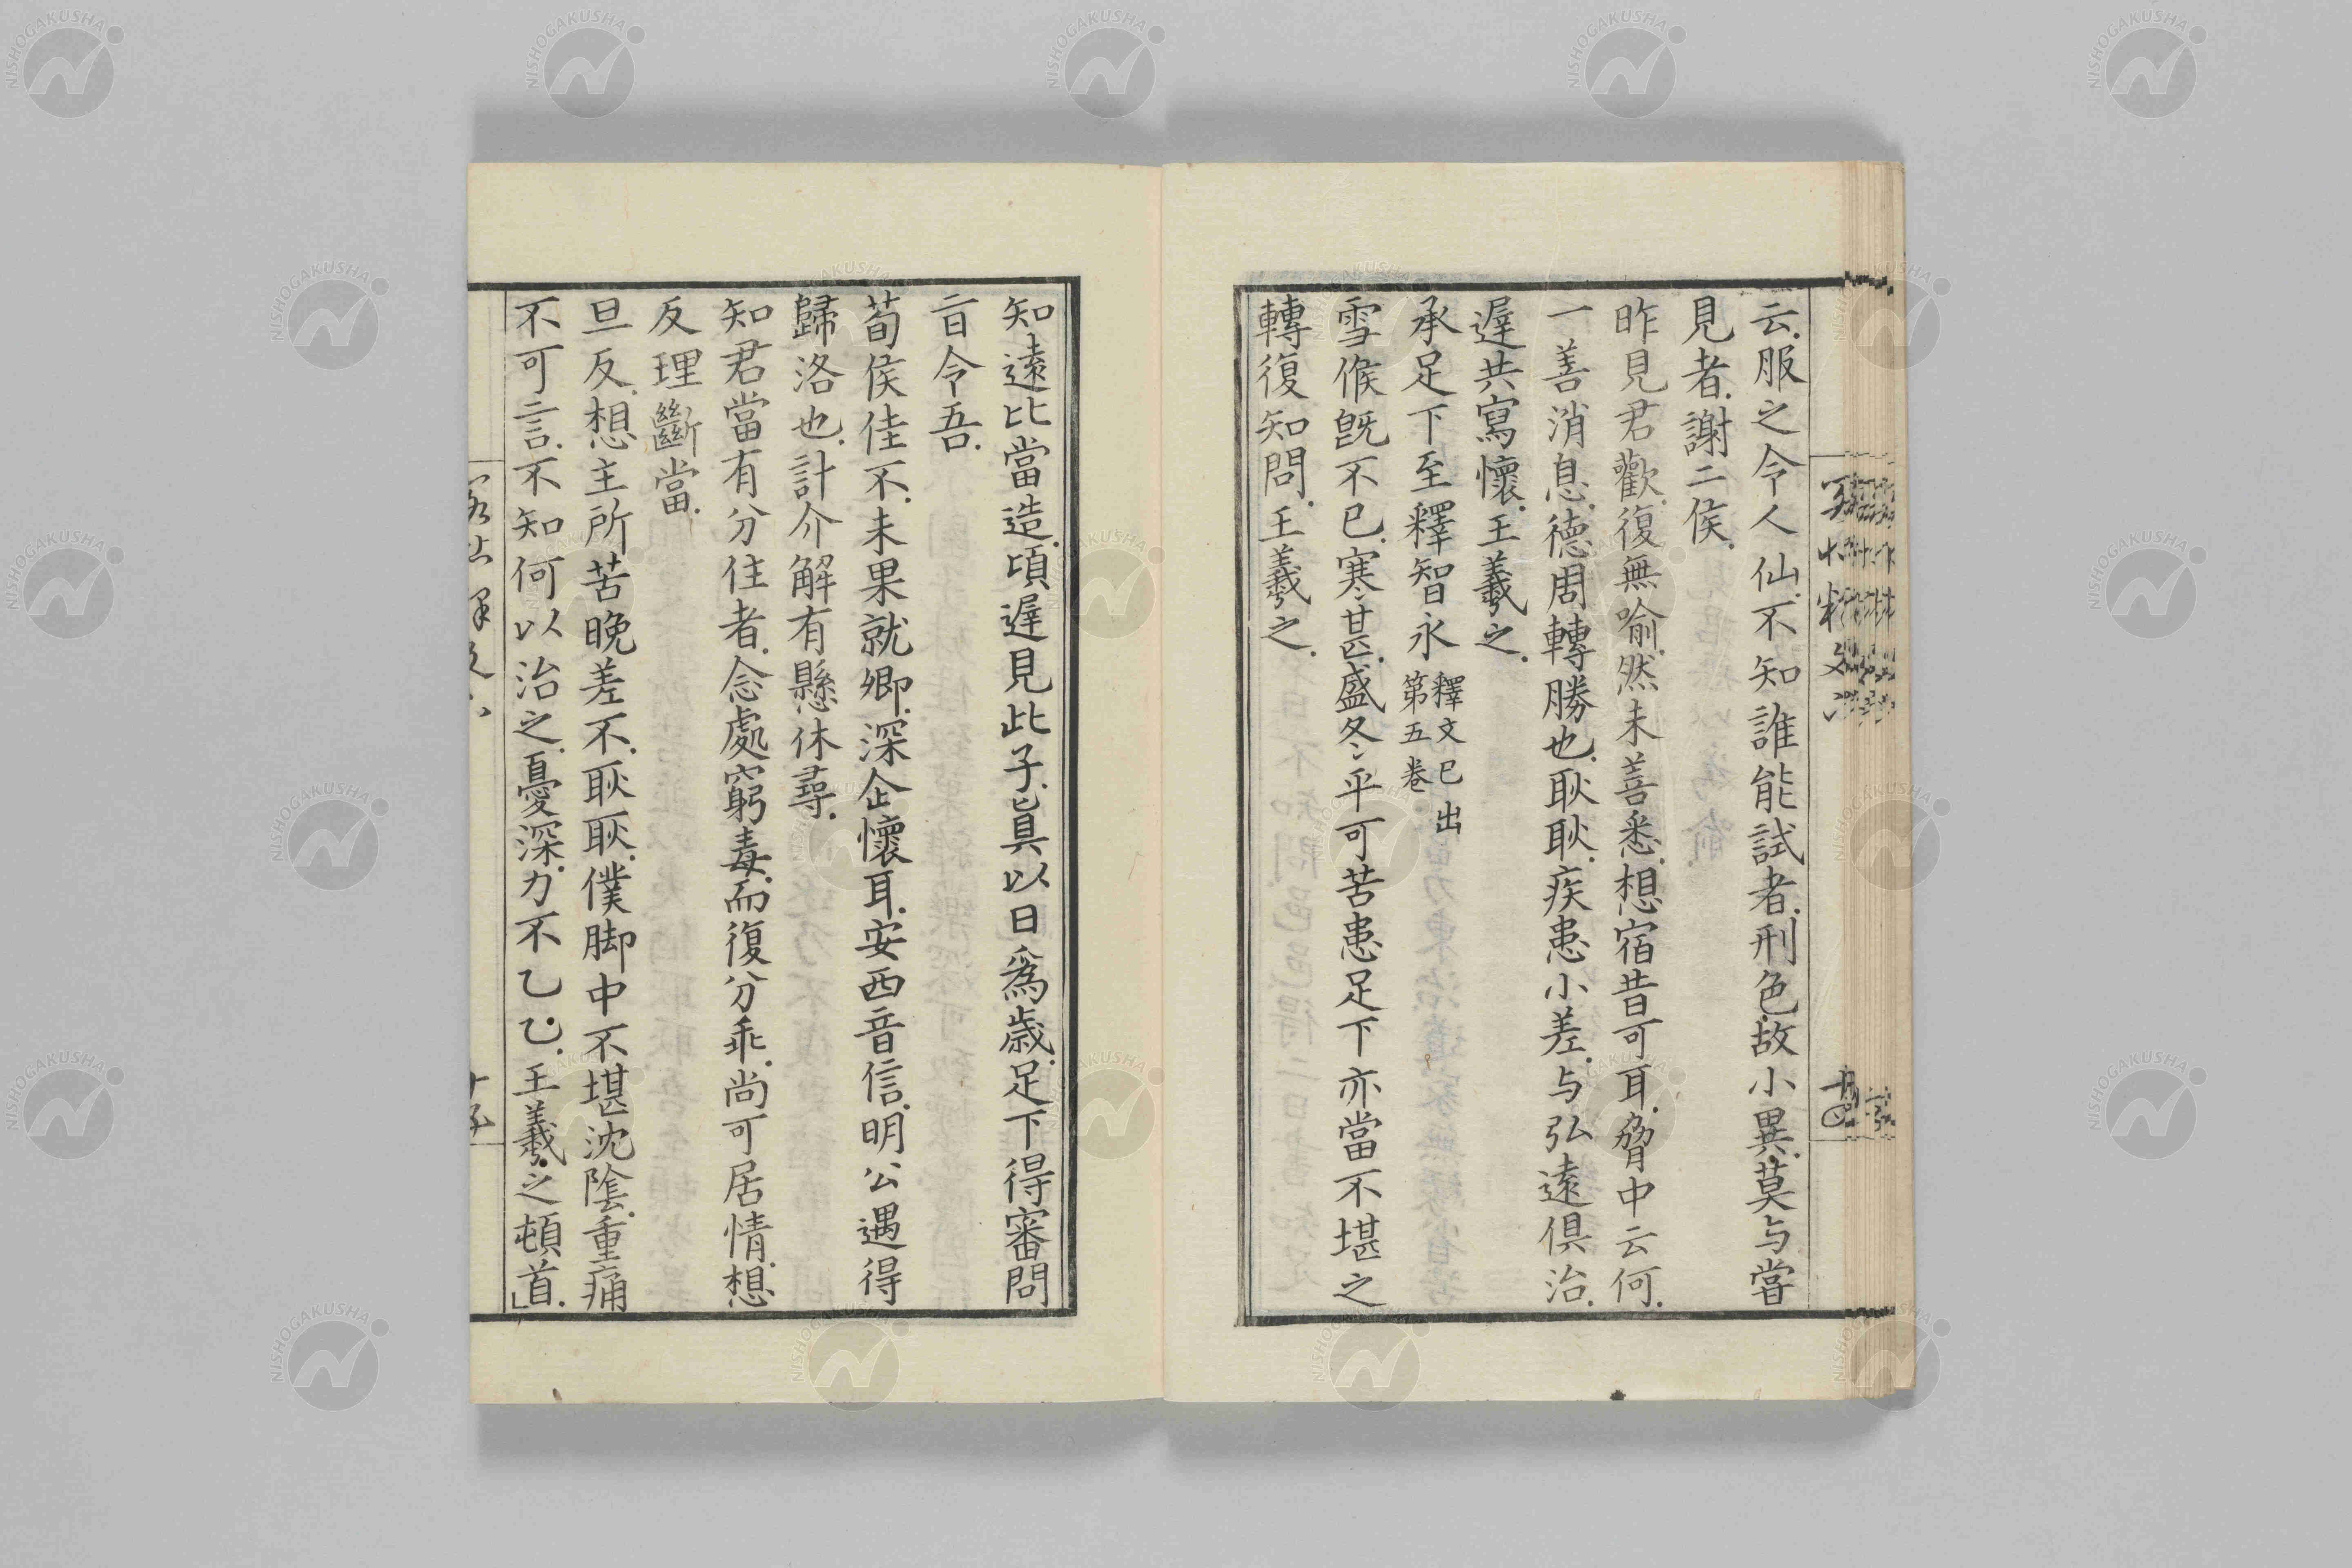 云服之令人仙不知誰能試者刑色故小異莫与嘗
見者謝二侯
昨見君歡復無喻然未善悉想宿昔可耳脅中云何
一善消息德周轉勝也耿耿疾患小差与弘遠俱治
遲共寫懷王羲之
承足下至釋智永
釋文已出
第五卷
雪候旣不已寒〻甚盛冬〻平可苦患足下亦當不堪之
轉復知問王羲之
知遠比當造頃遲見此子眞以日爲歲足下得審問
旨令吾
荀侯佳不未果就卿深企懷耳安西音信明公遇得
歸洛也計介解有懸休尋
知君當有分住者念處窮毒而復分乖尚可居情想
反理斷當
旦反想主所苦晚差不耿耿僕脚中不堪沈陰重痛
不可言不知何以治之憂深力不乙乙王羲之頓首
NISHOGAKUSHA